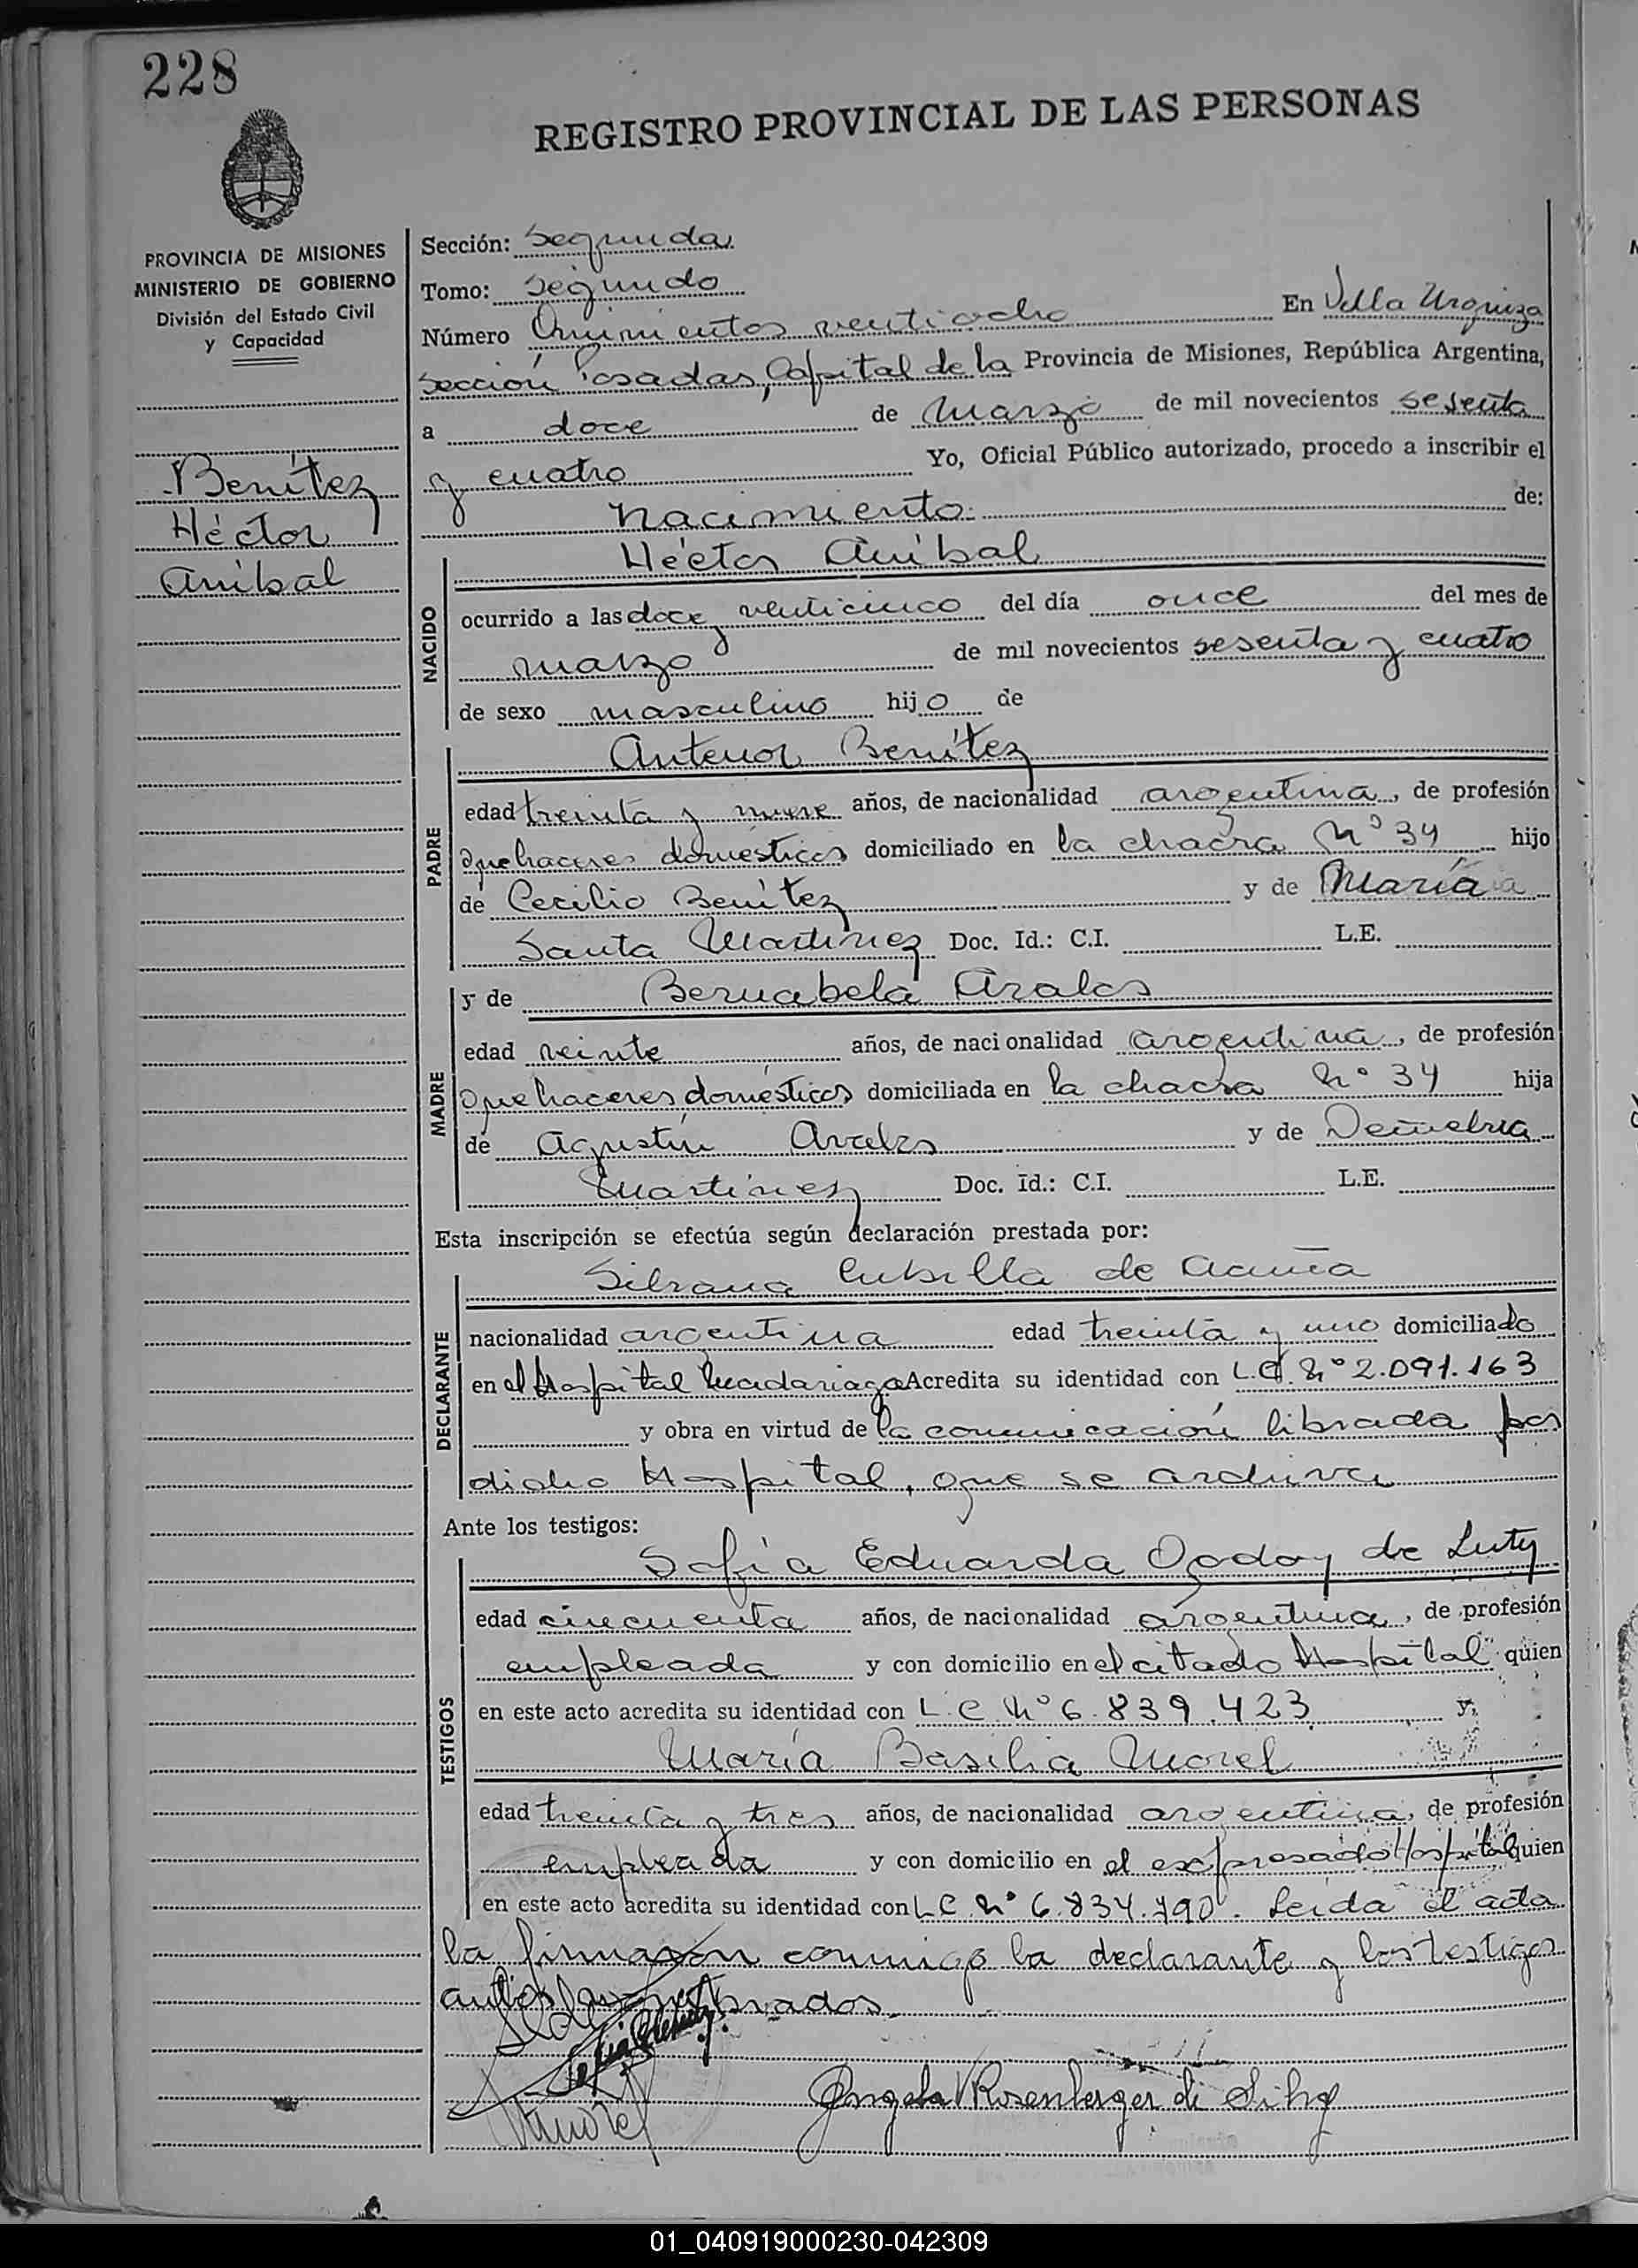 228
REGISTRO PROVINCIAL DE LAS PERSONAS
PROVINCIA DE MISIONES
MINISTERIO DE GOBIERNO
División del Estado Civil
y Capacidad
Benítez
Héctor
Aníbal
Sección: Segunda
Tomo: Segundo
Número Quinientos veintiocho En Villa Urquiza
Sección Posadas, Capital de la Provincia de Misiones, República Argentina,
a doce de Marzo de mil novecientos sesenta
y cuatro Yo, Oficial Público autorizado, procedo a inscribir el
nacimiento de:
NACIDO
Héctor Aníbal
ocurrido a las doce y veinticinco del día once del mes de
marzo de mil novecientos sesenta y cuatro
de sexo masculino hijo de
PADRE
Antenor Benítez
edad treinta y nueve años, de nacionalidad argentina, de profesión
quehaceres domésticos domiciliado en la chacra Nº 34 hijo
de Cecilio Benítez y de María
Santa Martínez Doc. Id.: C.I. L.E.
MADRE
y de Bernabela
edad veinte años, de nacionalidad argentina, de profesión
quehaceres domésticos domiciliada en la chacra Nº 34 hija
de Agustín y de Demetria
Martínez Doc. Id.: C.I. L.E.
Esta inscripción se efectúa según declaración prestada por:
DECLARANTE
Silvana Cubilla de Acuña
nacionalidad argentina edad treinta y uno domiciliado
en el Hospital Madariaga Acredita su identidad con L.C. Nº 2.091.163
y obra en virtud de la comunicación librada por
dicho Hospital, que se archiva
Ante los testigos:
TESTIGOS
Sofía Eduarda Godoy de Luty
edad cincuenta años, de nacionalidad argentina, de profesión
empleada y con domicilio en el citado Hospital quien
en este acto acredita su identidad con L.C. Nº 6.839.423 y,
María Basilia Morel
edad treinta y tres años, de nacionalidad argentina, de profesión
empleada y con domicilio en el expresado Hospital quien
en este acto acredita su identidad con LC Nº 6.834.790. Leída el acta
la firmaron conmigo la declarante y los testigos
antes nombrados
Morel
Angela Rosenberger de
01_040919000230-042309